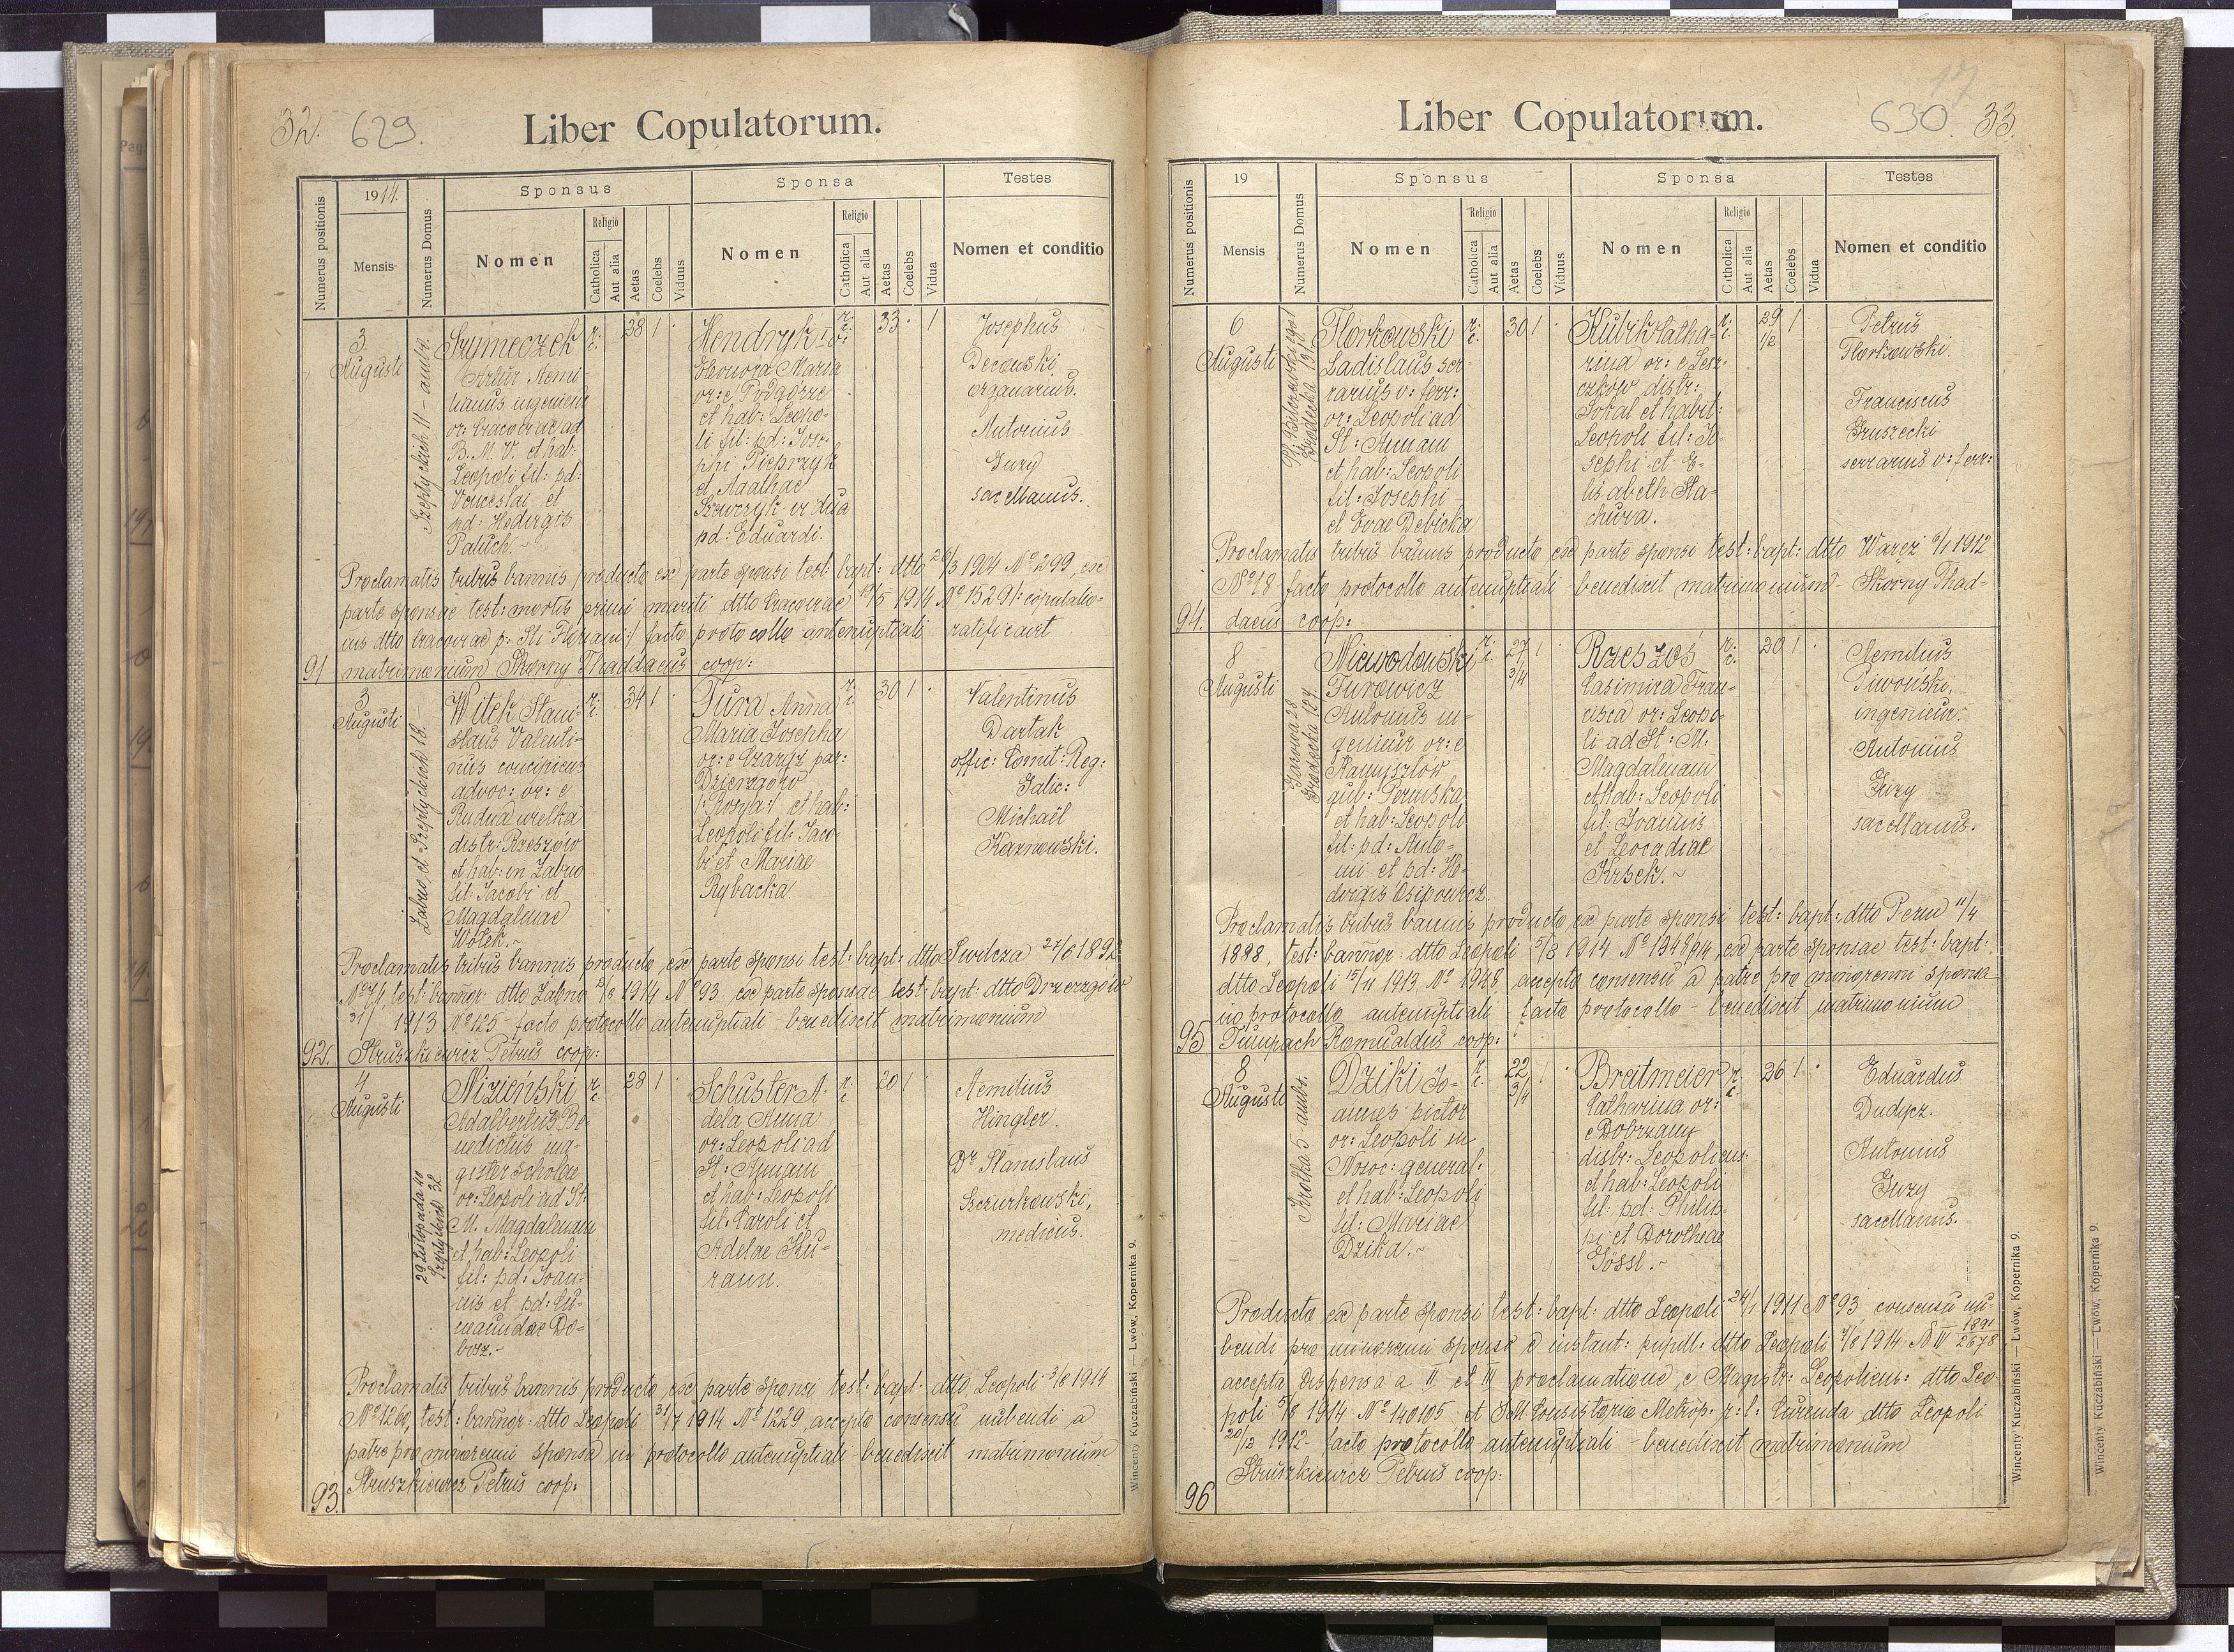 32. 629.
Liber Copulatorum.
Numerus positionis
1914.
Mensis
Numerus Domus
Sponsus
Nomen
Religio
Catholica
Aut alia
Aetas
Coelebs
Viduus
Sponsa
Nomen
Religio
Catholica
Aut alia
Aetas
Coelebs
Vidua
Testes
Nomen et conditio
91
3
Augusti
Szeptyckich 11 - ambo.
Szymeczek
Artur Aemi-
lianus ingenieur
or: Cracoviae ad
B. M. V. et hab:
Leopoli fil: pd:
Venceslai et
pd: Hedvigis
Paluch.~
r: c. 28 1 ·
Hendryk I v:
Eleonora Maria
or: e Podgórze
et hab: Leopo-
li fil: pd: Jose-
phi Pieprzyk
et Agathae
Szewczyk vidua
pd: Eduardi.
r: c. 33 · 1
Josephus
Decowski
organarius.
Antonius
Guzy
sacellanus.
Proclamatis tribus bannis producto ex parte sponsi test: bapt: dtto 26/3 1904 No 299, ex
parte sponsae test: mortis primi mariti dtto Cracoviae 19/5 1914 No 1529 /: copulatio-
nis dtto Cracoviae p: Sti Floriani :/ facto protocollo antenuptiali ratificavit
matrimonium Skorny Thaddaeus coop:
92.
3
Augusti
Żabno, et Szeptyckich 18.
Witek Stani-
slaus Valenti-
nus concipiens
advoc: or: e
Rudna wielka
distr: Rzeszów
et hab: in Żabno
fil: Jacobi et
Magdalenae
Wołek.~
r: c. 34 1 ·
Tura Anna
Maria Josepha
or: e Czarny par:
Dzierzgowo
/: Rosya :/ et hab:
Leopoli fil: Jaco
bi et Mariae
Rybacka
r: c. 30 1 ·
Valentinus
Dartak
offic: Comit: Reg:
Galic:
Michaël
Karnowski.
Proclamatis tribus bannis producto ex parte sponsi test: bapt: dtto Świlcza 27/6 1892
No 74, test: bannor: dtto Żabno 2/8 1914 No 93 ex parte sponsae test: bapt: dtto Dzierzgów
1913 No 125 - facto protocollo antenuptiali - benedixit matrimonium
Struszkiewicz Petrus coop:
93.
4
Augusti
29 Listopada 40
Szeptyckich 32
Nizieński
Adalbertus Be-
nedictus ma-
gister scholae
or: Leopoli ad St:
M. Magdalenam
et hab: Leopoli
fil: pd: Joan-
nis et pd: Cu-
nigundae Do-
bosz.~
r: c. 28 1 ·
Schuster A-
dela Anna
or: Leopoli ad
St: Annam
et hab: Leopoli
fil: Caroli et
Adelae Ku-
rann.
r: c. 20 1 ·
Aemilius
Hingler.
Dr Stanislaus
Szczurkowski,
medicus.
Proclamatis tribus bannis producto ex parte sponsi test: bapt: dtto Leopoli 3/8 1914
No 1260, test: bannor: dtto Leopoli 31/7 1914 No 1229, accepto consensu nubendi a
patre pro minorenni sponsa in protocollo antenuptiali benedixit matrimonium
Struszkiewicz Petrus coop:
Wincenty Kuczabiński — Lwów, Kopernika 9.
17
630. 33.
Liber Copulatorum.
Numerus positionis
19
Mensis
Numerus Domus
Sponsus
Nomen
Religio
Catholica
Aut alia
Aetas
Coelebs
Viduus
Sponsa
Nomen
Religio
Catholica
Aut alia
Aetas
Coelebs
Vidua
Testes
Nomen et conditio
94.
6
Augusti
Pl: Bilczewskiego 1
Gródecka 131
Florkowski
Ladislaus ser-
rarius v: ferr:
or: Leopoli ad
St: Annam
et hab: Leopoli
fil: Josephi
et Evae Debicka
r: c. 30 1 ·
Kubik Catha-
rina or: e Lesz-
czków distr:
Sokal et habit:
Leopoli fil: Jo-
sephi et E-
lisabeth Sta-
chura.
r: c. 29 1/2 1 ·
Petrus
Florkowski
Franciscus
Gruszecki
serrarius v: ferr:
Proclamatis tribus bannis producto ex parte sponsi test: bapt: dtto Waręż 6/1 1912
No 18 - facto protocollo antenuptiali - benedixit matrimonium - Skorny Thad-
daeus coop:
95
8
Augusti
Janowa 28
Grodecka 127.
Niewodowski
Turowicz
Antonius in-
genieur or: e
gub: Permska
et hab: Leopoli
fil: pd: Anto-
nii et pd: He-
dvigis Osipowicz.
r: c. 27 3/4 1 ·
Rzeszoś
Casimira Fran-
cisca or: Leopo-
li ad St: M:
Magdalenam
et hab: Leopoli
fil: Joannis
et Leocadiae
Krsek.~
r: c. 20 1 ·
Aemilius
Piwoński,
ingenieur.
Antonius
Guzy
sacellanus.
Proclamatis tribus bannis producto ex parte sponsi test: bapt: dtto Perm 11/4
1898, test: bannor: dtto Leopoli 5/8 1914 No 1948/14, ex parte sponsae test: bapt:
dtto Leopoli 15/11 1913 No 1948, accepto consensu a patre pro minorenni sponsa
in protocollo antenuptiali - facto protocollo - benedixit matrimonium
Romualdus coop:
96
8
Augusti
Krótka 5 ambo.
Dziki Jo-
annes pictor
or: Leopoli in
Nosoc: general:
et hab: Leopoli
fil: Mariae
Dzika.~
r: c. 22 3/4 1 ·
Breitmeier
Catharina or:
e Dobrzany
distr: Leopoliens:
et hab: Leopoli
fil: pd: Philip-
pi et Dorotheae
Gössl.~
r: c. 26 1 ·
Eduardus
Dudycz.
Antonius
Guzy
sacellanus.
Producto ex parte sponsi test: bapt: dtto Leopoli 24/1 1911 No 93 consensu nu-
bendi pro minorenni sponso e instant: pupill: dtto Leopoli 7/8 1914 No IV 1891/2678
accepta dispensa a II et III proclamatione e Magistr: Leopoliens: dtto Leo-
poli 5/8 1914 No 140105 et SM Consistorio Metrop: r: l: Curenda dtto Leopoli
20/12 1912 - facto protocollo antenuptiali - benedixit matrimonium
Struszkiewicz Petrus coop:
Wincenty Kuczabiński — Lwów, Kopernika 9.
Wincenty Kuczabiński — Lwów, Kopernika 9.